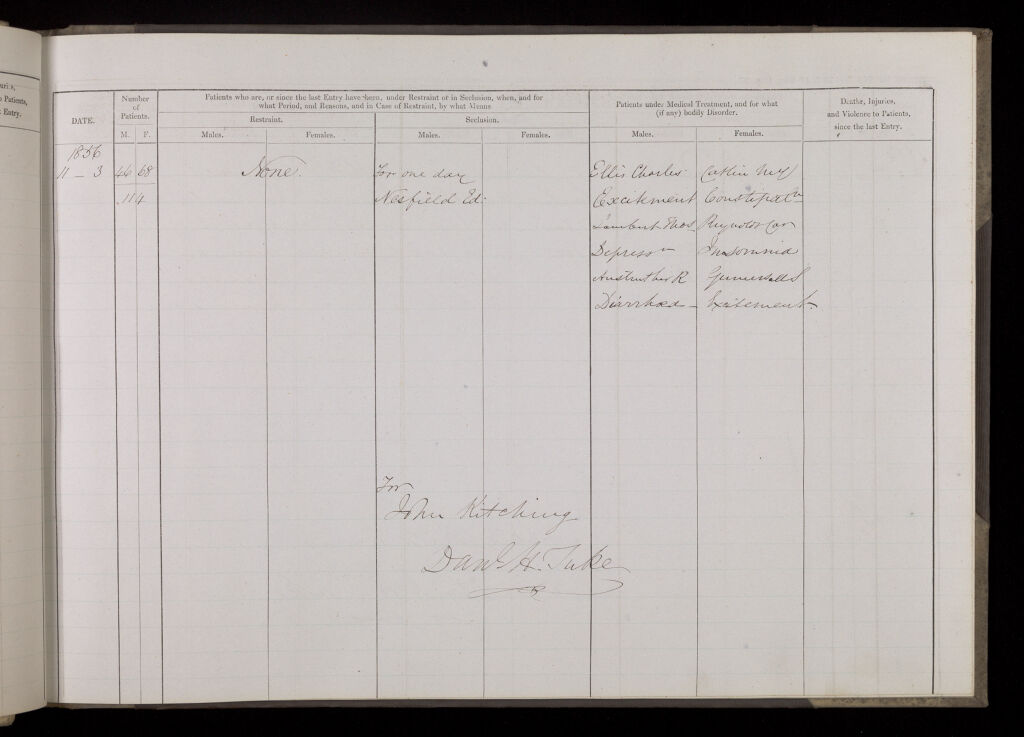 uries,
o Patients,
t Entry.
DATE.
Number
of
Patients.
M. F.
Patients who are, or since the last Entry have been, under Restraint or in Seclusion, when, and for
what Period, and Reasons, and in Case of Restraint, by what Means
Restraint. Seclusion.
Males. Females. Males. Females.
Patients under Medical Treatment, and for what
(if any) bodily Disorder.
Males. Females.
Deaths, Injuries,
and Violence to Patients,
since the last Entry.
1856
11 - 3 46 68 None. For one day Ellis Charles
114 Nesfield Ed. Excitement Constipatn
Lambert Thos Reynolds Car
Depressn Insomnia
Anstruther R
Diarrhœa Excitement
For
John Kitching
Danl H. Tuke